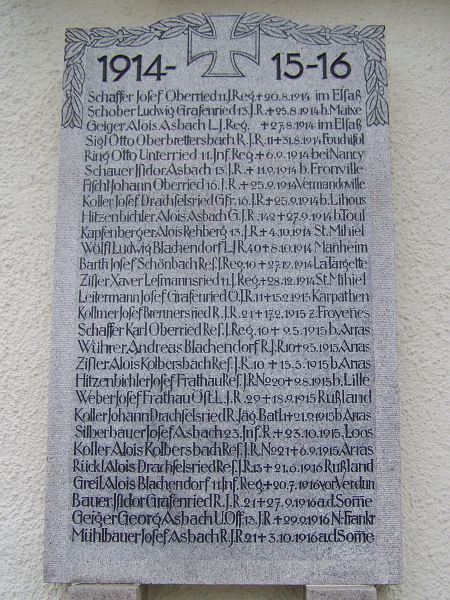 1914- 15-16
Schaffer Josef Oberried 11. J. Reg. + 20.8.1914 im Elsaß
Schober Ludwig Grafenried 13. J. R. + 25.8.1914 b. Maixe
Geiger Alois Asbach L. J. Reg. + 27.8.1914 im Elsaß
Sigl Otto Oberbrettersbach R. J. R. 11 + 31.8.1914
Ring Otto Unterried 11. Jnf. Reg. + 6.9.1914 bei Nancy
Schauer Jsidor Asbach 13. J. R. + 11.9.1914 b. Fronville
Fischl Johann Oberried 16. J. R. + 25.9.1914 Vermandoville
Koller Josef Drachselsried Gfr. 16. J. R. + 25.9.1914 b. Lihons
Hitzenbichler, Alois Asbach G. J. R. 142 + 27.9.1914 b. Toul
Kapfenberger Alois Rehberg 13. J. R. + 4.10.1914 St. Mihiel
Wölfl Ludwig Blachendorf L. J. R. 40 + 8.10.1914 Manheim
Barth Josef Schönbach Res. J. Reg. 10 + 27.12.1914 La Targette
Zisler Xaver Lesmannsried 11. J. Reg. + 28.12.1914 St. Mihiel
Leitermann Josef Grafenried O. J. R. 11 + 15.2.1915 Karpathen
Kollmer Josef Brennersried R. J. R. 21 + 17.2.1915 z. Froyenes
Schaffer Karl Oberried Res. J. Reg. 10 + 9.5.1915 b. Arras
Wührer, Andreas Blachendorf R. J. R. 10 + 25.1915 Arras
Zisler, Alois Kolbersbach Res. J. R. 10 + 15.5.1915 b. Arras
Hitzenbichler Josef Frathau Res. J. R. No 220 + 2.8.1915 b. Lille
Weber Josef Frathau Öst. L. J. R. 29 + 18.9.1915 Rußland
Koller Johann Drachselsried R. Jäg. Batl. 1 + 21.9.1915 b. Arras
Silberbauer Josef, Asbach 23. Jnf. R. + 23.10.1915, Loos
Koller Alois Kolbersbach Res. J. R. No 21 + 6.9.1915 Arras
Rückl Alois Drachselsried Res. J. R. 13 + 21.6.1916 Rußland
Greil, Alois Blachendorf 11. Jnf. Reg. + 20.7.1916 vor Verdun
Bauer Jsidor Grafenried R. J. R. 21 + 27.9.1916 a. d. Some
Geiger Georg Asbach U Off. 13. J. R. + 29.9.1916 N. Frankr
Mühlbauer Josef Asbach R. J. R. 21 + 3.10.1916 a. d. Some